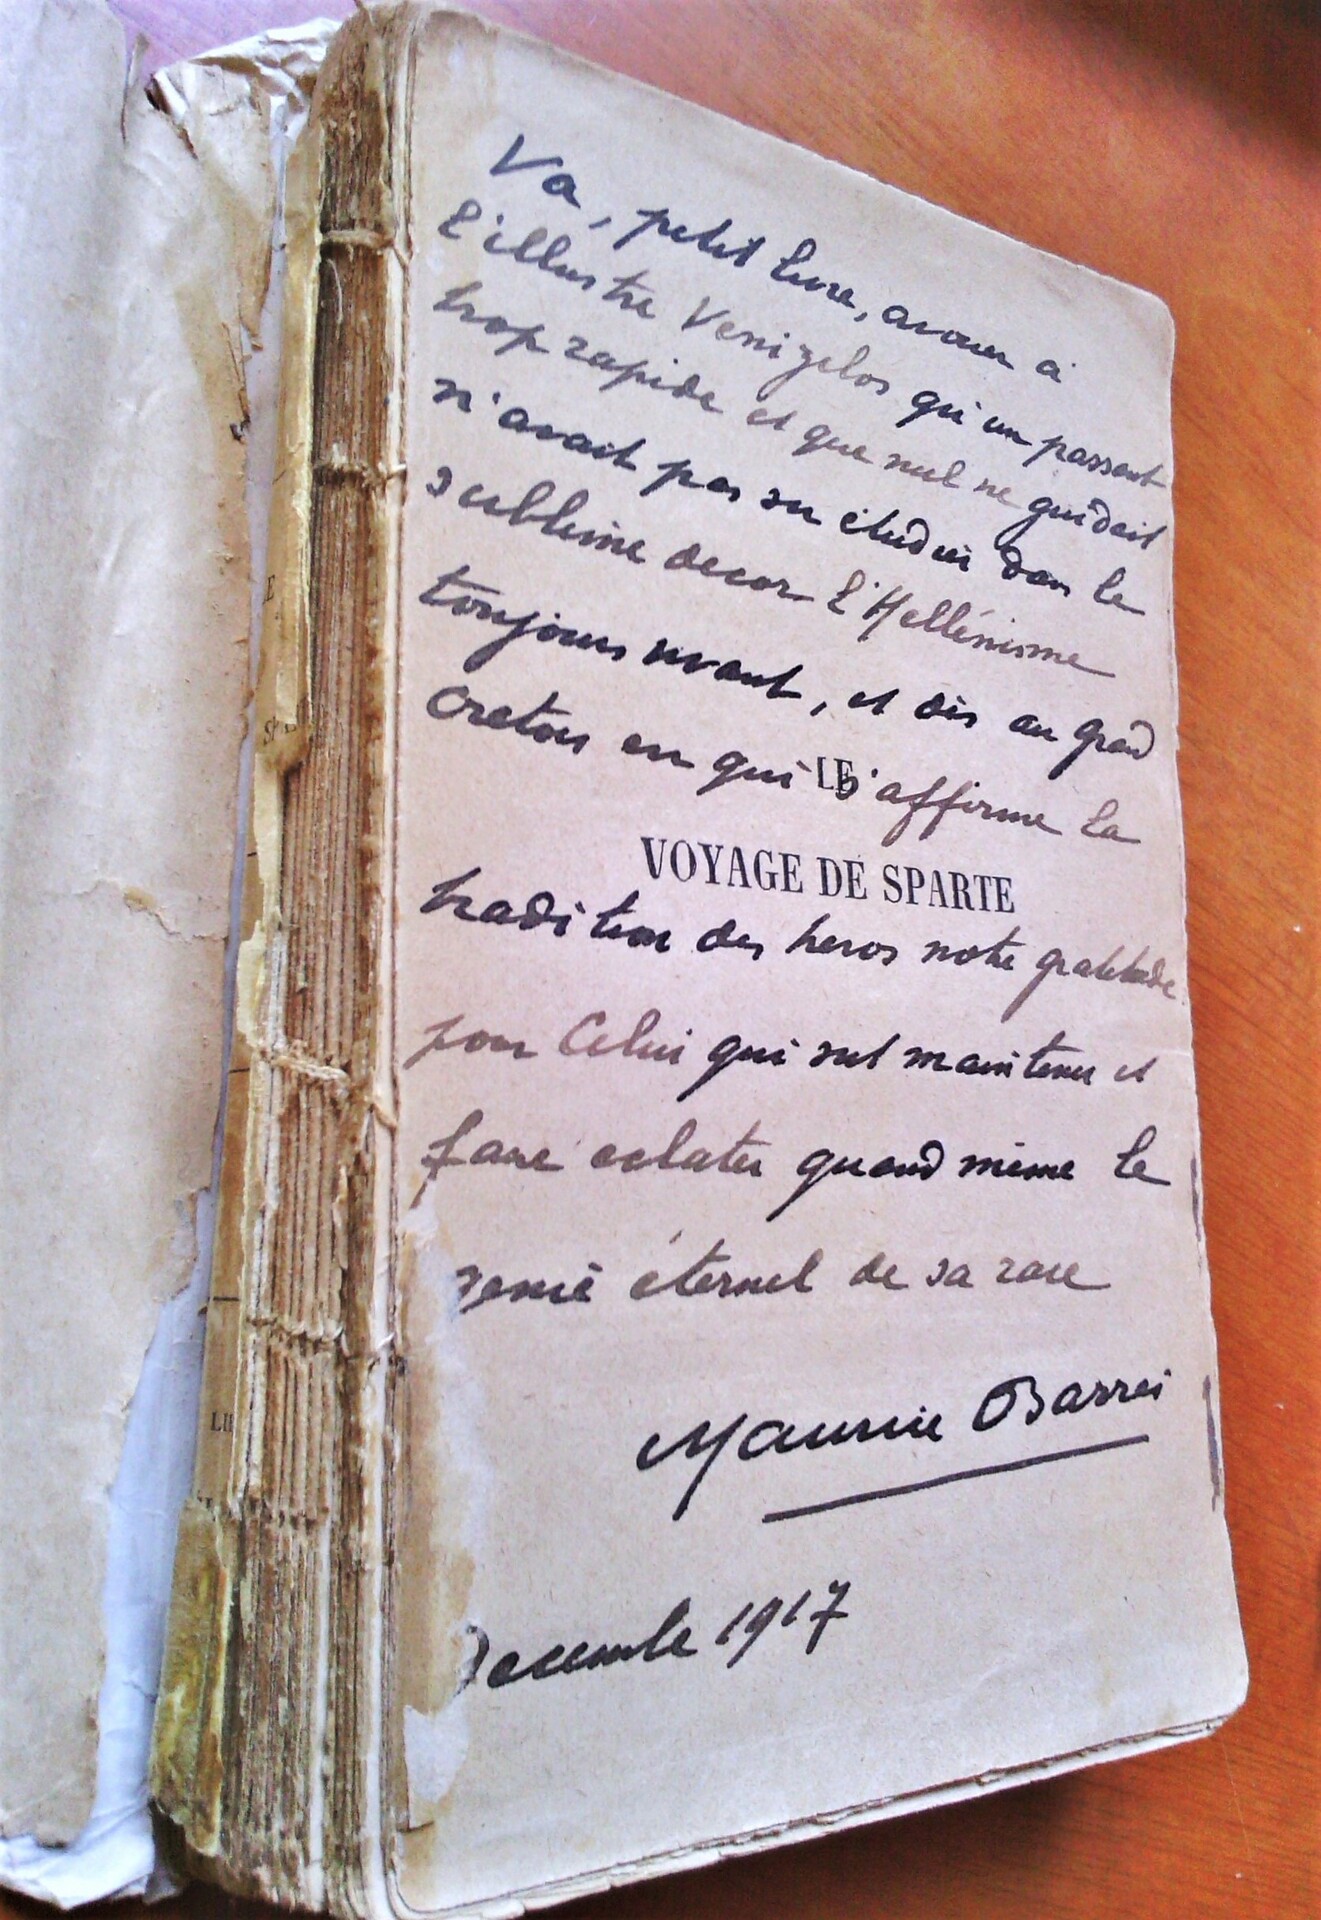 Va, petit livre, avouer à
l'illustre Venizelos qu'un passant
trop rapide et que nul ne guidait
n'avait pas su étudier dans le
sublime decor l'Hellénisme
toujours vivant, et dis au grand
Cretois en qui s'affirme la
LE
VOYAGE DE SPARTE
tradition des heros notre gratitude
pour Celui qui sut maintenir et
faire eclater quand même le
genie éternel de sa race
Maurice Barrès
Decembre 1917